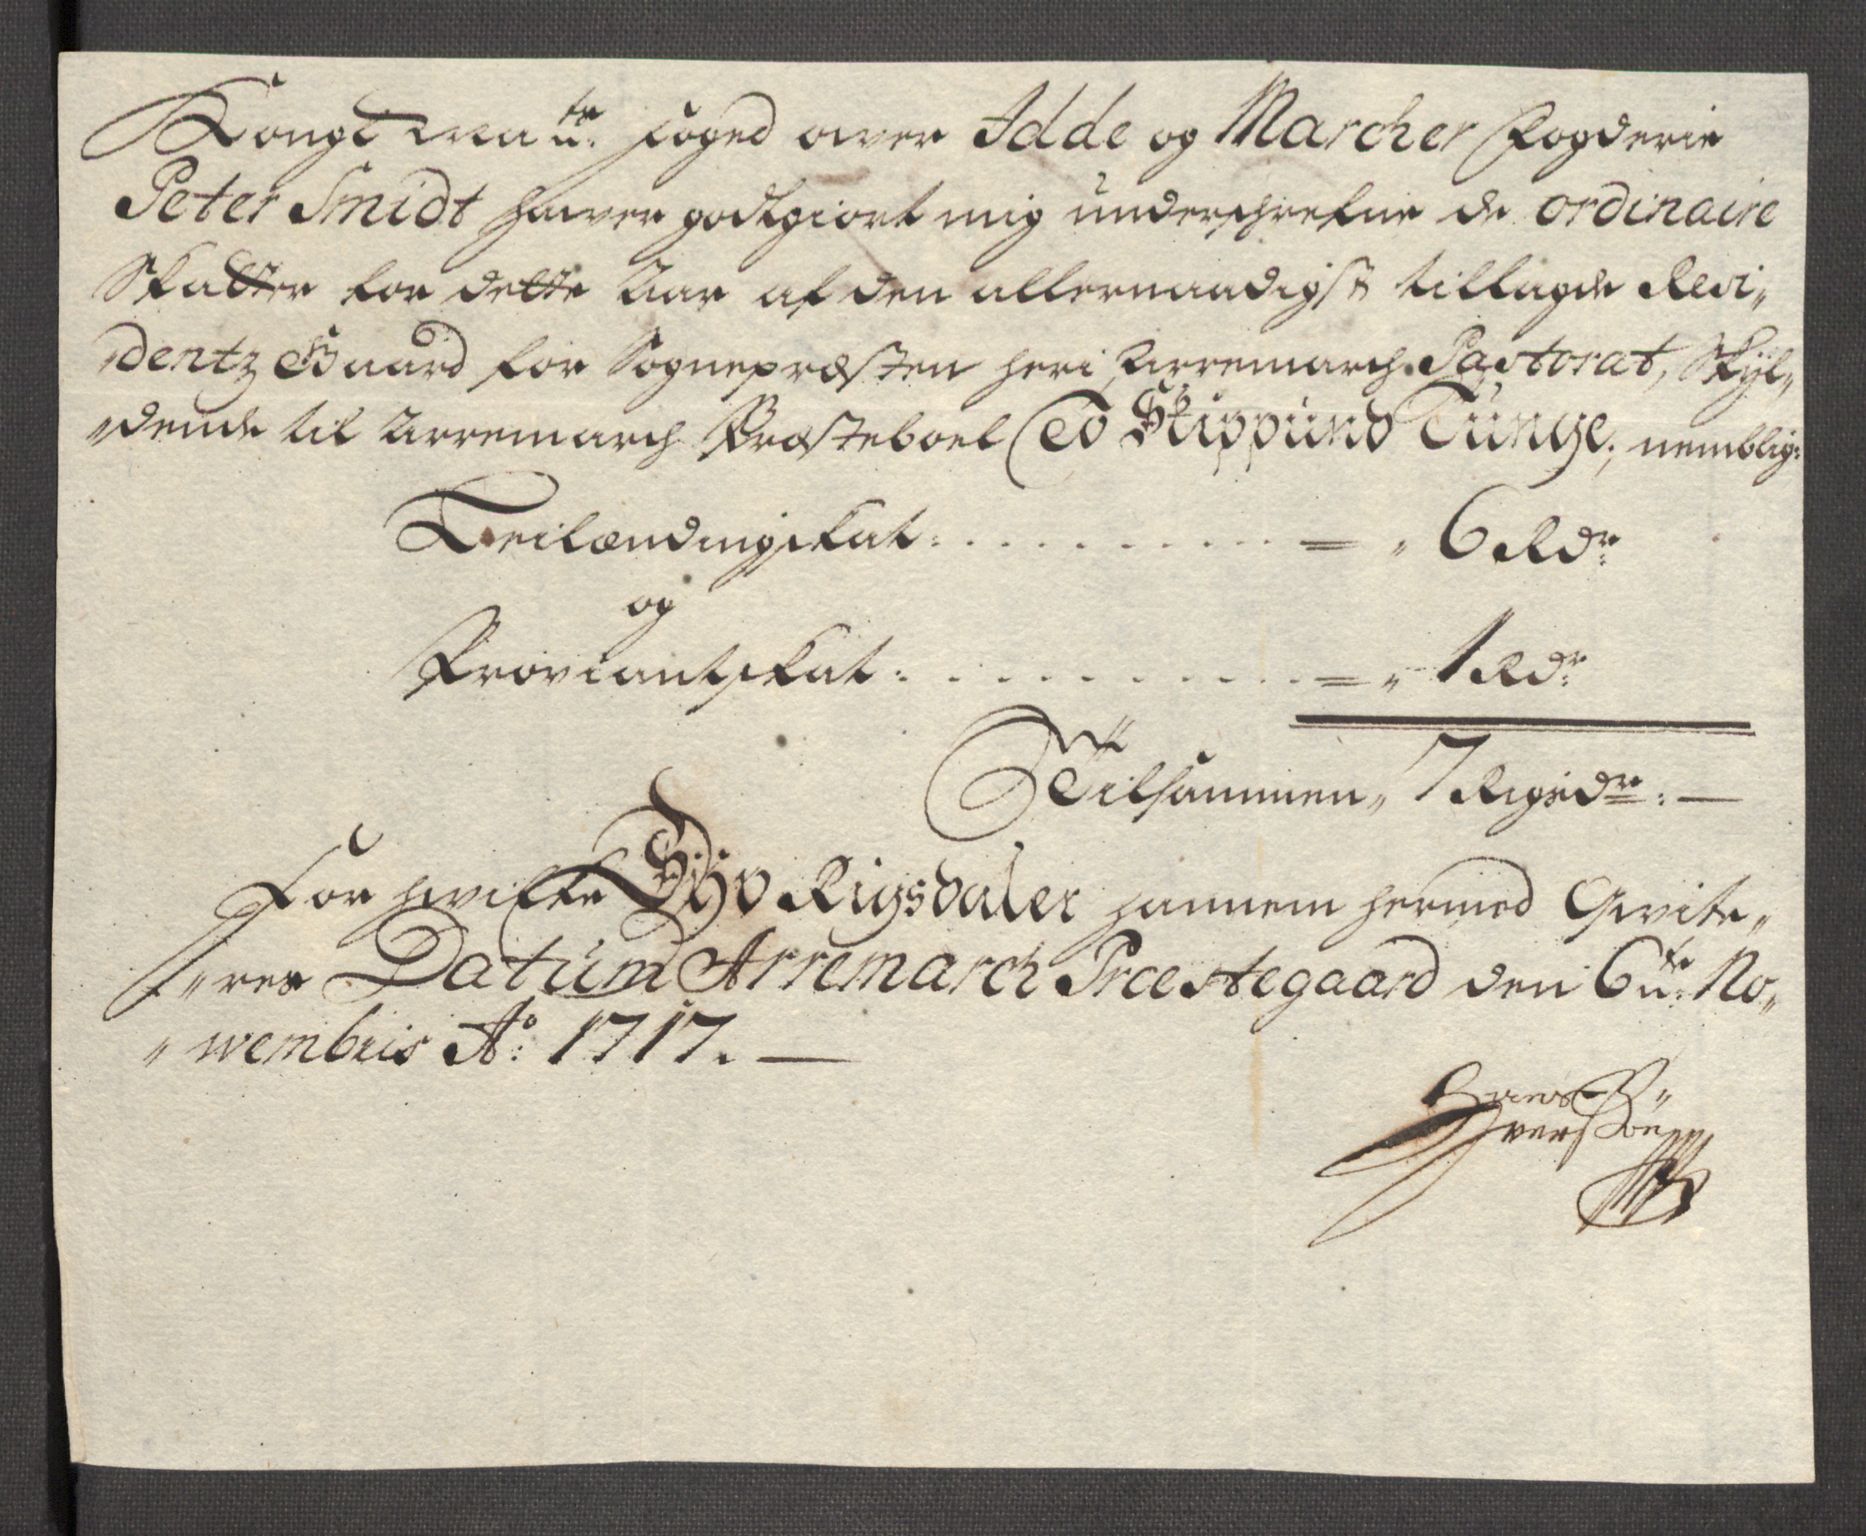 Kongl Ma tts foged over Idde og Marcher Fogderie
Peter Smidt hawer godtgiort mig underschrefne de ordinaire
Skatter for dette Aar af den allernaadigst tillagde Resi„
„dentz Gaard for Sognepræsten her i Arremarch Pastorat, Skÿl„
„dende til Arremarch Præsteboel Tò Skippund Tunge; nemblig:
Leilændingskat: . . . . . . . . . . = „ 6 Rdr
og
Proviantskat: . . . . . . . . . . = „ 1 Rdr
Tilsammen „ 7 Rigsdr: —
For hvilke Sÿv Rigsdaler hannem hermed Qvite„
„res Datum Arremarch Præstegaard den 6te No„
„wembris Ao: 1717. —